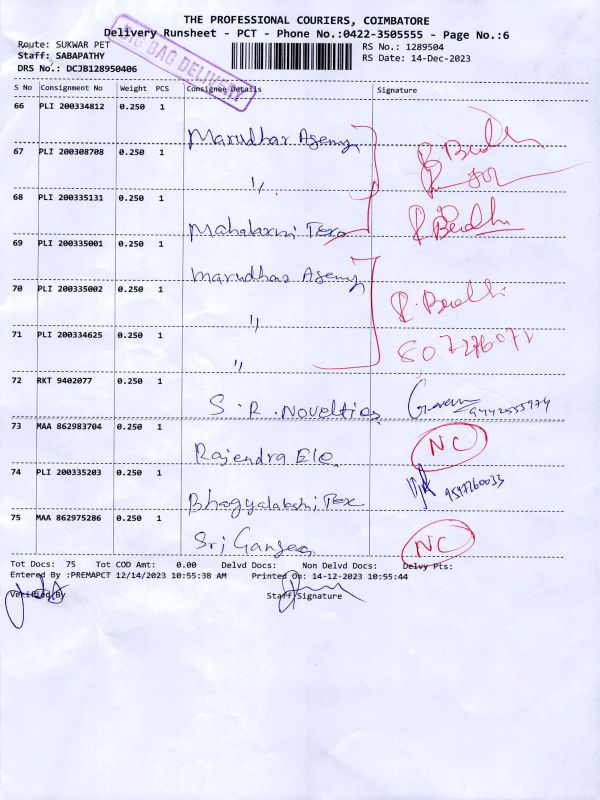 THE PROFESSIONAL COURIERS, COIMBATORE
Delivery Runsheet - PCT - Phone No.:0422-3505555 - Page No.:6
Route: SUKWAR PET
RS No.: 1289504
Staff: SABAPATHY
RS Date: 14-Dec-2023
DRS No.: DCJB128950406
BIG BAG DELIVERY
S No Consignment No Weight PCS Consignee Details Signature
66 PLI 200334812 0.250 1
Marudhar Agency
67 PLI 200308708 0.250 1
"
68 PLI 200335131 0.250 1
Mahalaxmi Texo
69 PLI 200335001 0.250 1
Marudhar Agency
70 PLI 200335002 0.250 1
"
71 PLI 200334625 0.250 1
"
72 RKT 9402077 0.250 1
S.R. Novelties
73 MAA 862983704 0.250 1
NC
Rajendra Ele.
74 PLI 200335203 0.250 1
9597260033
Bhagyalakshi Tex
75 MAA 862975286 0.250 1
NC
Sri Gansea
Tot Docs: 75 Tot COD Amt: 0.00 Delvd Docs: Non Delvd Docs: Delvy Pts:
Entered By :PREMAPCT 12/14/2023 10:55:38 AM Printed On: 14-12-2023 10:55:44
Verified By Staff Signature